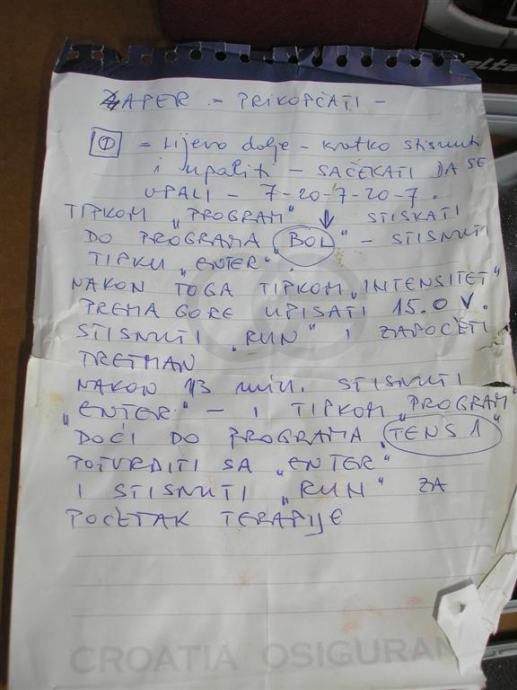 ZAPER - PRIKOPČATI -
① = Lijevo dolje - kratko stisnuti
i upaliti - SAČEKATI DA SE
UPALI - 7-20-7-20-7.
TIPKOM "PROGRAM" ↓ STISKATI
DO PROGRAMA "BOL" - STISNUTI
TIPKU "ENTER"
NAKON TOGA TIPKOM "INTENSITET"
PREMA GORE UPISATI 15.0 V.
STISNUTI "RUN" I ZAPOČETI
TRETMAN
NAKON 43 min. STISNUTI
"ENTER" - I TIPKOM "PROGRAM"
DOĆI DO PROGRAMA "TENS 1"
POTVRDITI SA "ENTER"
I STISNUTI "RUN" ZA
POČETAK TERAPIJE
CROATIA OSIGURAN